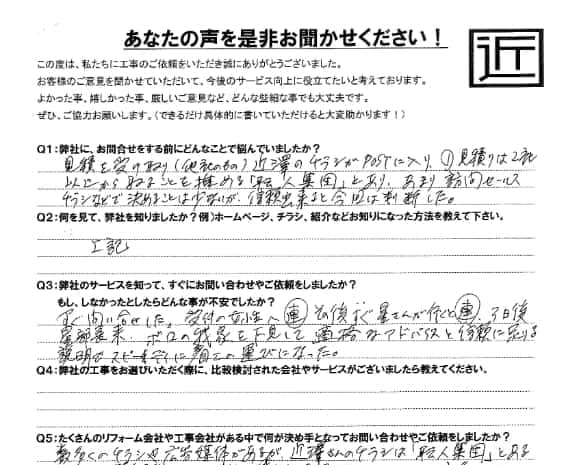 あなたの声を是非お聞かせください！
近
この度は、私たちに工事のご依頼をいただき誠にありがとうございました。
お客様のご意見を聞かせていただいて、今後のサービス向上に役立てたいと考えております。
よかった事、嬉しかった事、厳しいご意見など、どんな些細な事でも大丈夫です。
ぜひ、ご協力お願いします。（できるだけ具体的に書いていただけると大変助かります！）
Q1：弊社に、お問合せをする前にどんなことで悩んでいましたか？
見積を受け取り（他社のもの）近澤のチラシがPOSTに入り、①見積りは2社
以上から取ることを推める「職人集団」とあり、あまり訪問セールス
チラシなどで決めることは少ないが、信頼出来ると今回は判断した。
Q2：何を見て、弊社を知りましたか？例）ホームページ、チラシ、紹介などお知りになった方法を教えて下さい。
上記
Q3：弊社のサービスを知って、すぐにお問い合わせやご依頼をしましたか？
もし、しなかったとしたらどんな事が不安でしたか？
すぐ問い合せした。受付の女性へ㊑その後すぐ星さんが行くと㊑、3日後
来、ボロの我家を下見して適格なアドバイスと信頼に足りる
説明でスピーディに契約の運びになった。
Q4：弊社の工事をお選びいただく際に、比較検討された会社やサービスがございましたら教えてください。
Q5：たくさんのリフォーム会社や工事会社がある中で何が決め手となってお問い合わせやご依頼をしましたか？
数多くのチラシや広告媒体があるが、近澤さんのチラシは「職人集団」とある